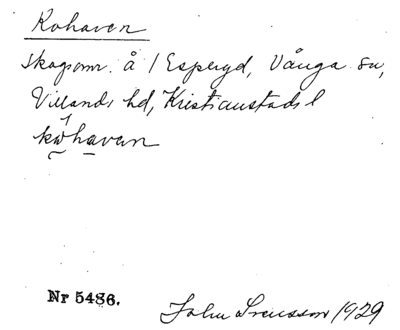 Kohaven
Skogsomr. å 1 Esperyd, Vånga sn,
Villands hd, Kristianstads l
kohavan
Nr 5486.
John Svensson 1929